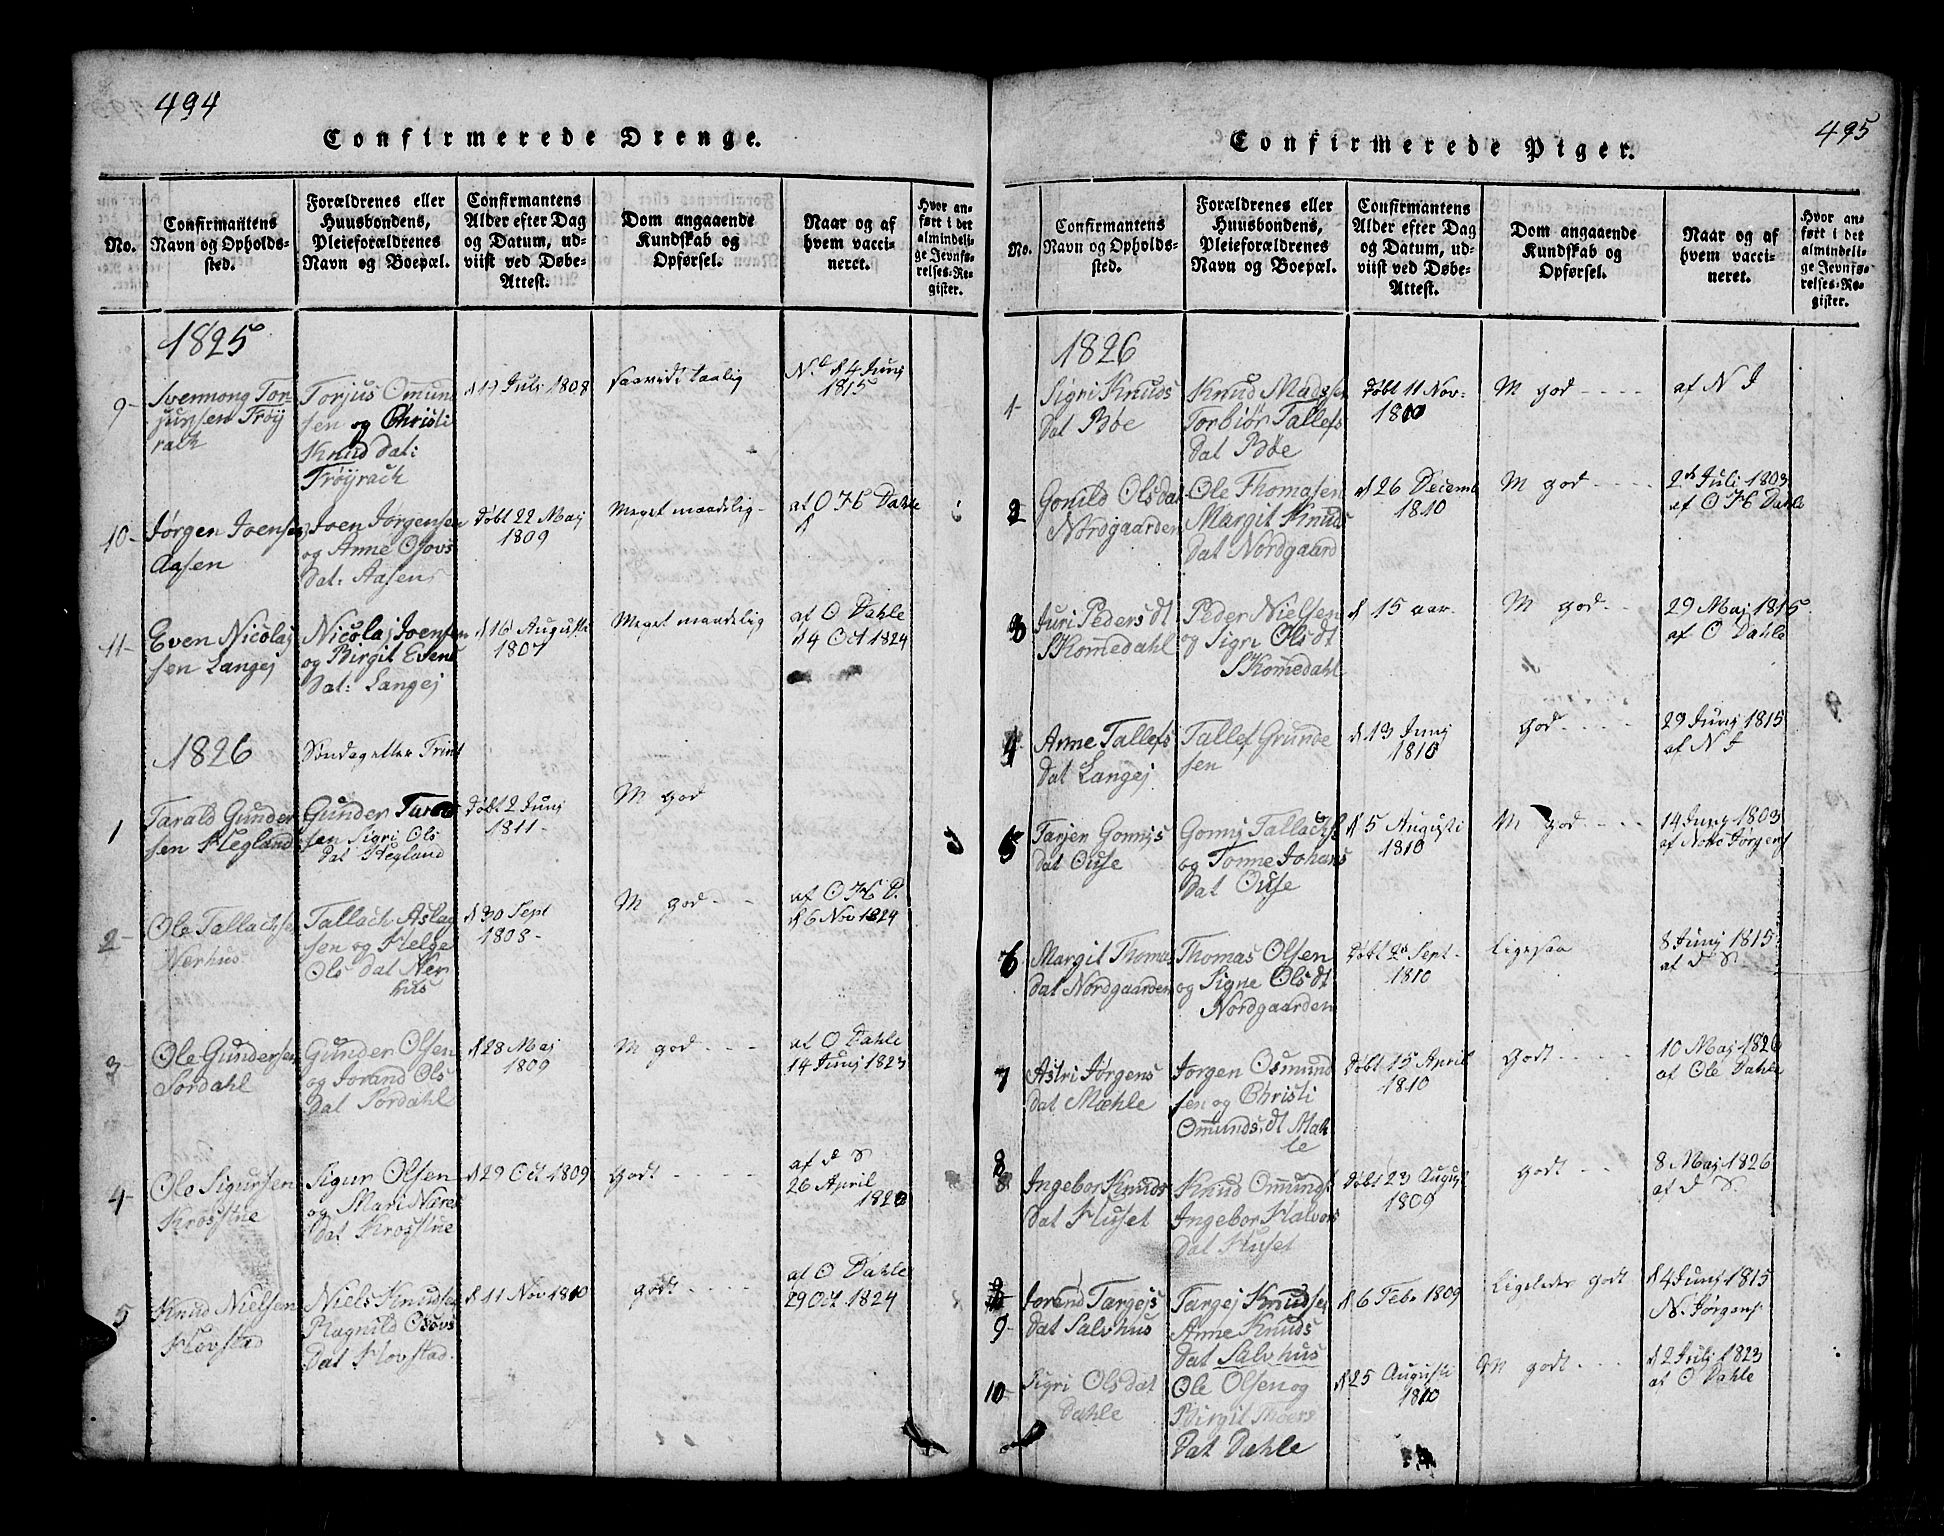 494
Confirmerede Drenge.
No.
Confirmantens
Navn og Opholds-
sted.
Forældrenes eller
Huusbondens,
Pleieforældrenes
Navn og Boepæl.
Confirmantens
Alder efter Dag
og Datum, ud-
viist ved Døbe-
Attest.
Dom angaaende
Kundskab og
Opførsel.
Naar og af
hvem vacci-
neret.
Hvor an-
ført i det
almindeli-
ge Jevnfø-
relses-Re-
gister.
1825
9-
Svennong Tor
Torjus Omund
sen og Christi
Knud Dat:
Trøyrach
d 19 Juli 1808
saavidt taalig
d 4 Junj
1815
10-
Jørgen Joensen
Aasen
Joen Jørgensen
og Anne Olovs
Dat: Aasen
Døbt 22 Maj
1809
Meget maadelig-
af O K Dahle
11-
Even Nicolaj
sen Langej
Nicolaj Joensen
og Birgit Evens
Dat: Langej
d 16 Augusti
1807
Meget maadelig
af O Dahle
d 14 Oct 1824
1826
Søndag efter Trinit
1
Tarald Gunder
sen Hegland
Gunder Tarald
sen Sigri Ols
Dat Hegland
Døbt 2 Junj
1811-
M god
2-
Ole Tallachsen
Nerhus
Tallach Aslag
sen og Helge
Ols Dat Ner
hus
d 30 Sept
1808-
M god - -
af O K D.
d 6 Nov 1824
3-
Ole Gundersen
Sordahl
Gunder Olsen
og Jorand Ols
Dat Sordahl
d 28 Maj
1809
M god - - -
af O Dahle
14 Junj 1823
4-
Ole Sigursen
Krosstue
Sigur Olsen
og Mari Nires
Dat Krosstue
d 29 Oct 1809
godt - - - -
af d S
26 April
5
Knud Nielsen
Hovstad
Niels Knudsen
Ragnild Olovs
Dat Hovstad.
d 11 Nov 1810
godt - - - -
af O Dahle
29 Oct 1824
495
Confirmerede Piger.
No.
Confirmantens
Navn og Opholds-
sted.
Forældrenes eller
Huusbondens,
Pleieforældrenes
Navn og Boepæl.
Confirmantens
Alder efter Dag
og Datum, ud-
viist ved Døbe-
Attest.
Dom angaaende
Kundskab og
Opførsel.
Naar og af
hvem vacci-
neret.
Hvor an-
ført i det
almindeli-
ge Jevnfø-
relses-Re-
gister.
1826
1-
Sigri Knuds
Dat Bøe
Knud Madssen
Torbiør Tallefs
Dat Bøe
Døbt 11 Nov-
1810
M god - - - -
af N J
2
Gonild Olsdat
Nordgaarden
Ole Thomasen
Margit Knuds
Dat Nordgaard
d 26 Decemb
1810
M god - - - -
2 Juli 1803
af O K Dahle
3
Juri Pedersdt
Skomedahl
Peder Nielsen
og Sigri Olsdt
Skomedahl
d 15 aar.
M god - -
29 Maj 1815
af O Dahle
4
Anne Tallefs
Dat Langej
Tallef Grunde
sen
d 13 Junj
1810
god - - - -
29 Junj 1815
af N J
5
Tarjer Gonnys
dat Ouse
Gonnj Tallachs
og Tonne Johans
Dat Ouse
d 5 Augusti
1810
M god - - - -
14 Junj 1803
af Jørgens
6
Margit Thomas
dat Nordgaarden
Thomas Olsen
og Signe Olsdt
Nordgaarden
Døbt Sept-
1810
Ligesaa
8 Junj 1815
af d S
7
Astri Jørgens
dat Mæhle
Jørgen Osmund
sen og Christi
Omunds. dt Mæh
le
Døbt 15 April
1810
godt - - -
10 Maj 1826
af Ole Dahle
8
Ingebor Knuds
Dat Huset
Knud Omunds
Ingebor Halvors
Dat Huset
Døbt 23 August
1809
godt - -
8 Maj 1826
af d S.
9-
Jorend Targejs
dat Salvhus
Targej Knudsen
Anne Knuds
Dat Salvhus
d 6 Febr 1809
Ligeledes godt
d 4 Junj 1815
N. Jørgens
10-
Sigri Olsdat
Dahle
Ole Olsen og
Birgit
Dat Dæhle
d 25 Augusti
1810
M godt - - -
d 2 Julj 1823
af O Dahle